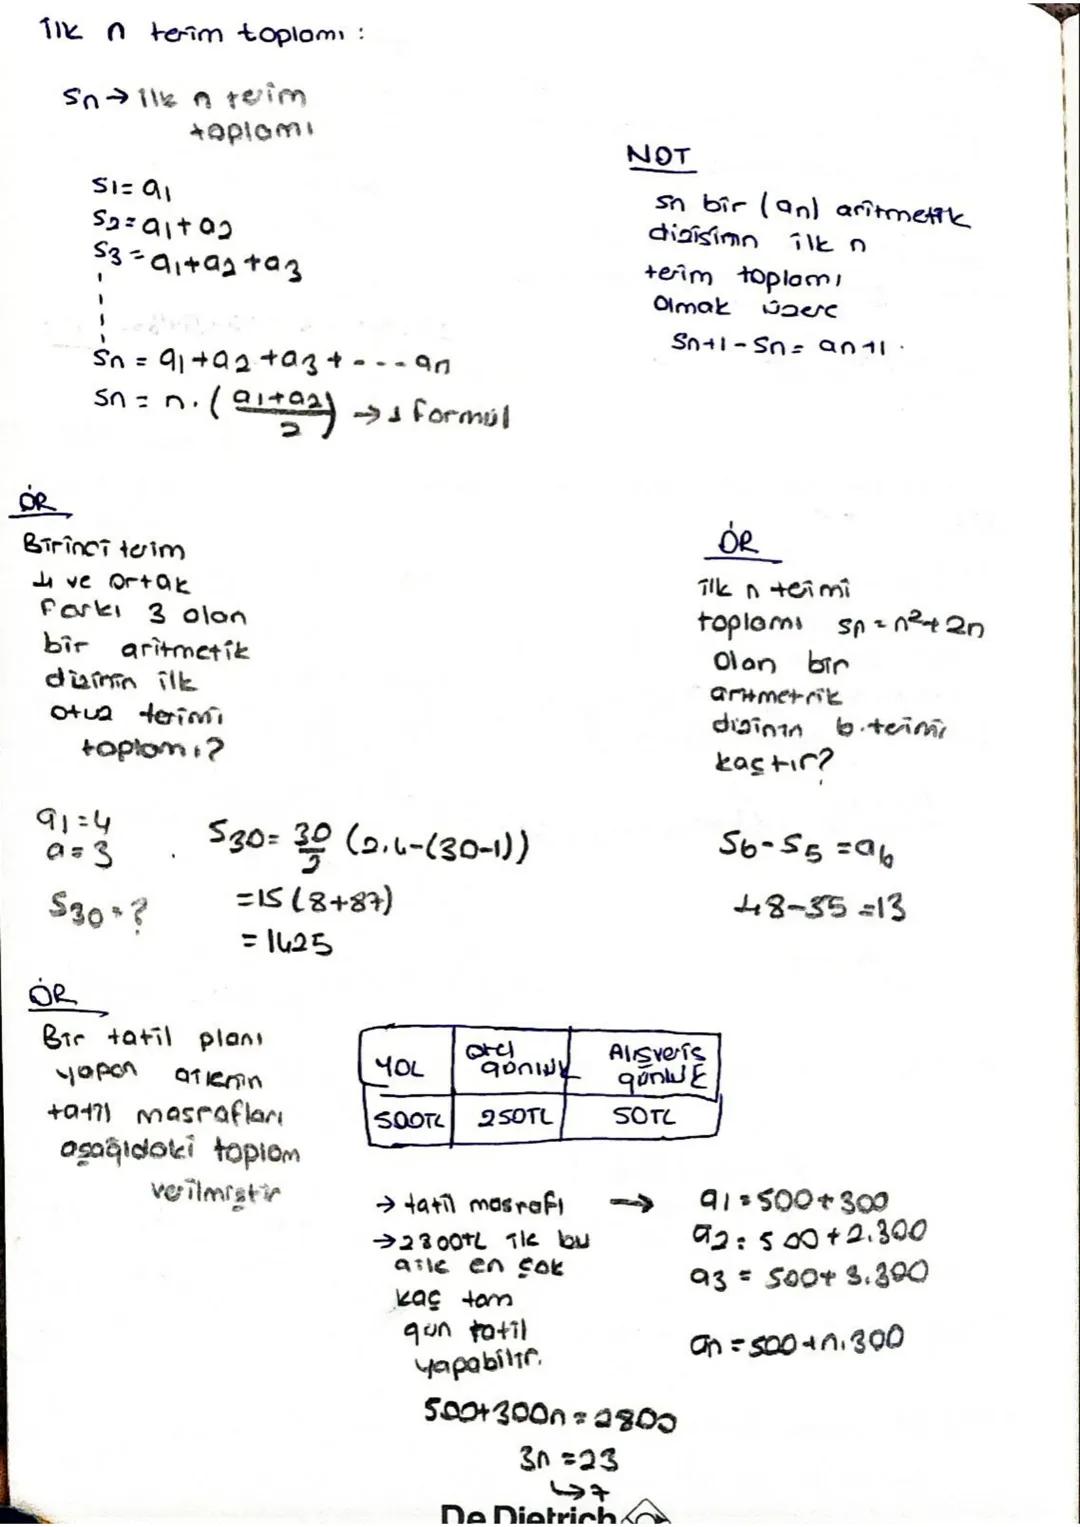 ilk n terim toplamı :
Sn → ilk n terim
toplamı
S1 = a1
S2 = a1 + a2
S3 = a1 + a2 + a3
Sn = a1 + a2 + a3 + - - - - an
Sn = n . ( a1 + a2 / 2 ) → 1 formül
NOT
Sn bir (an) aritmetik
dizisinin ilk n
terim toplamı
olmak üzere
Sn+1 - Sn = an+1 .
ÖR
Birinci terim
4 ve ortak
farkı 3 olan
bir aritmetik
dizinin ilk
otuz terimi
toplamı ?
a1 = 4
a = 3
S30 = ?
S30 = 30/2 (2.4-(30-1))
= 15 (8+87)
= 1425
ÖR
ilk n terimi
toplamı Sn = n² + 2n
olan bir
aritmetrik
dizinin 6.terimi
kaçtır?
S6 - S5 = a6
48 - 35 = 13
ÖR
Bir tatil planı
yapan ailenin
tatil masrafları
aşağıdaki toplam
verilmiştir
YOL | Otel günlük | Alışveriş günlük
500TL | 250TL | 50TL
→ tatil masrafı →
→ 2800TL ile bu
aile en çok
kaç tam
gün tatil
yapabilir.
a1 = 500 + 300
a2 = 500 + 2.300
a3 = 500 + 3.300
an = 500 + n.300
500 + 300n = 2800
3n = 23
↳ 7
De Dietrich